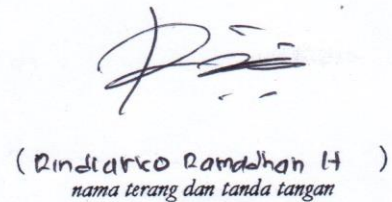 (Rindiarko Ramadhan H)
nama terang dan tanda tangan